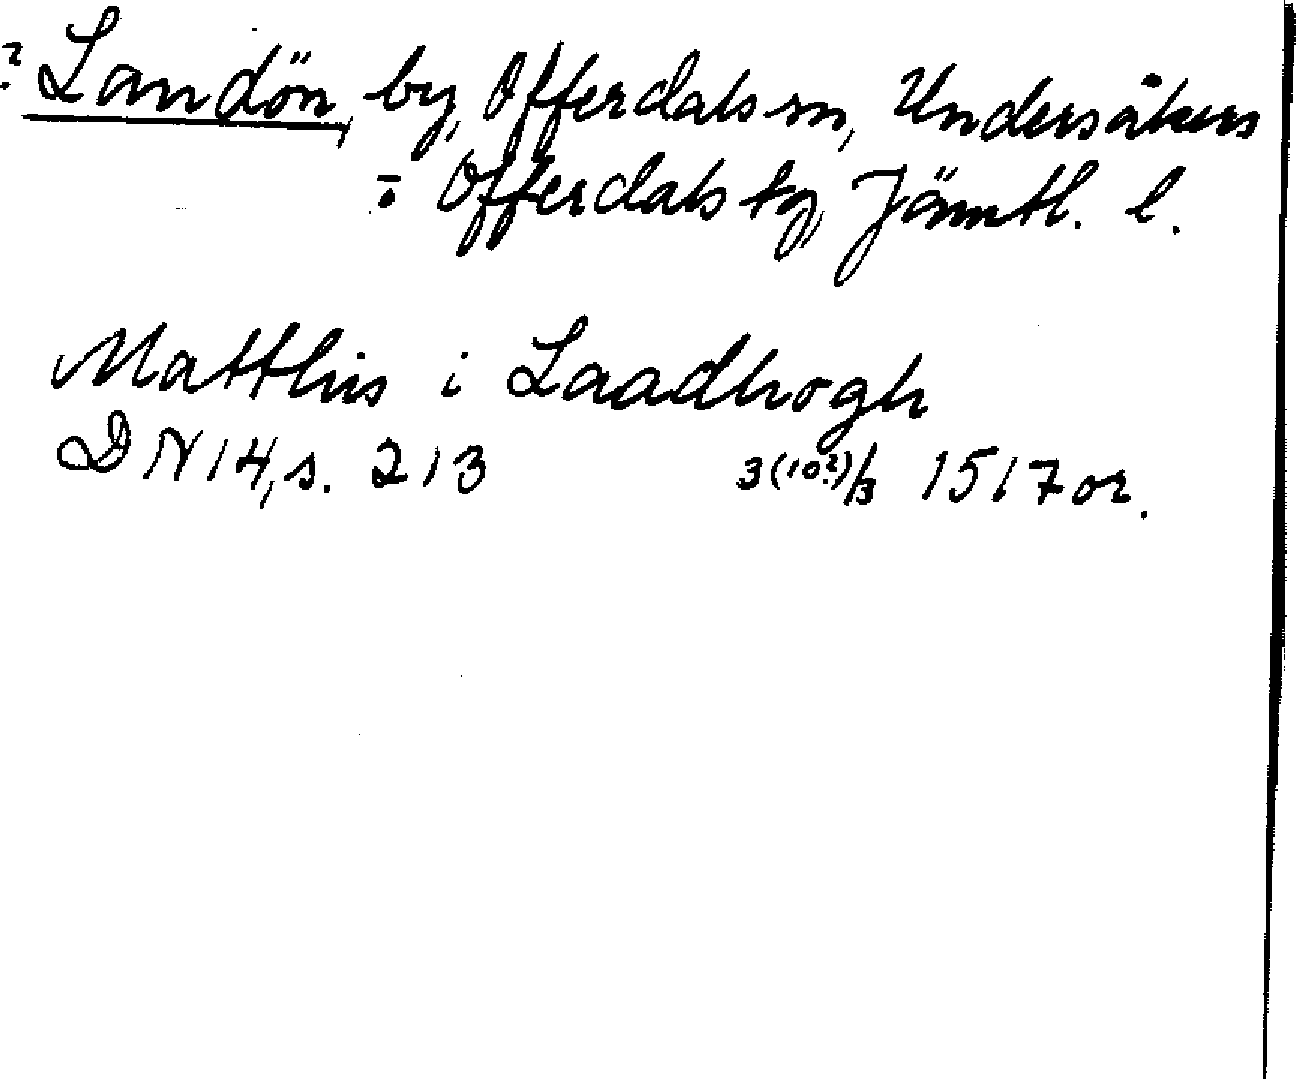 ? Landön, by, Offerdals sn, Undersåkers
o. Offerdals tg, Jämtl. l.
Matthis i Laadhogh
DN 14, s. 213 3(10?)/3 1517 or.